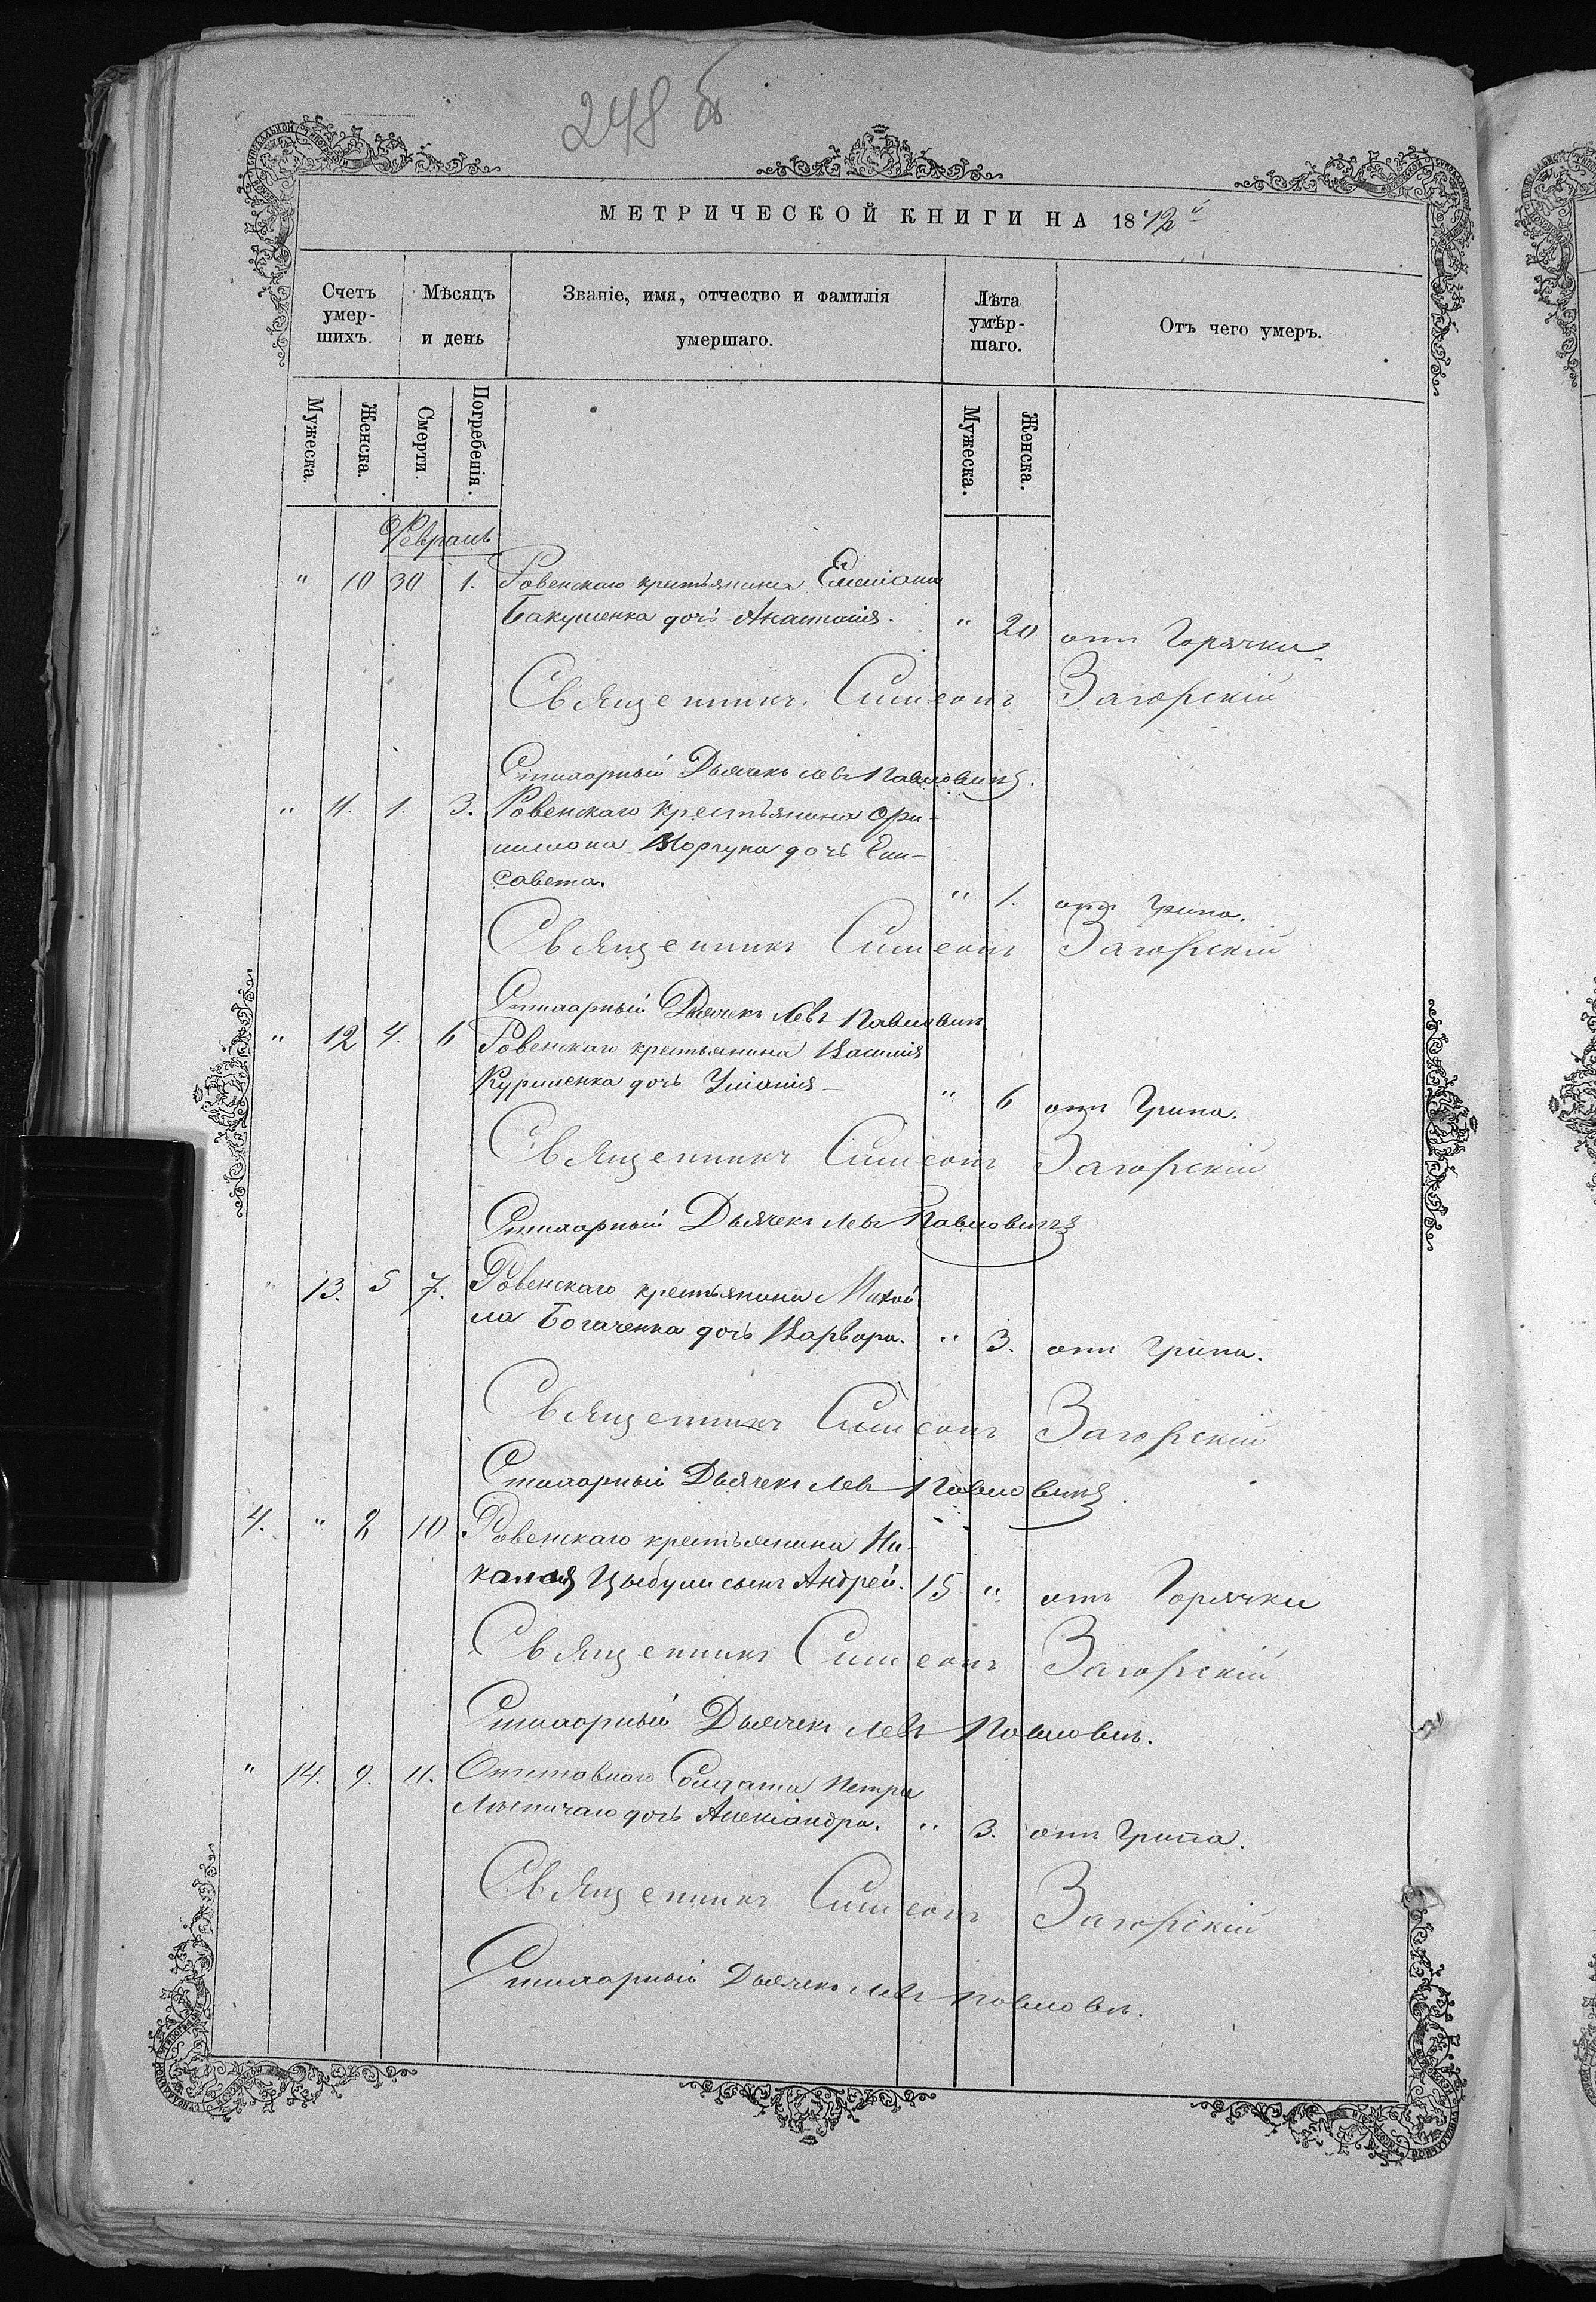 248 б
МЕТРИЧЕСКОЙ КНИГИ НА 1872й
Счетъ умер-шихъ.
Мѣсяцъ и день
Званіе, имя, отчество и фамилія умершаго.
Лѣта умѣр-шаго.
Отъ чего умеръ.
Мужеска. Женска. Смерти. Погребенія. Мужеска. Женска.
Февраль
" 10 30 1. Ровенскаго крестьянина Емеліана
Бакуменка дочь Анастасія. " 20 отъ Горячки
Священникъ Симеонъ Загорскій
Стихарный Дьячекъ Левъ Павловичъ.
" 11. 1. 3. Ровенскаго крестьянина
Моргуна дочь Ели-
савета. " 1. отъ Грипа.
Священникъ Симеонъ Загорскій
Стихарный Дьячекъ Левъ Павловичъ
" 12 4. 6 Ровенскаго крестьянина Василія
дочь Уліанія " 6 отъ Грипа.
Священникъ Симеонъ Загорскій
Стихарный Дьячекъ Левъ Павловичъ
" 13. 5 7. Ровенскаго крестьянина Михай
ла Богаченка дочь Варвара. " 3. отъ Грипа.
Священникъ Симеонъ Загорскій
Стихарный Дьячекъ Левъ Павловичъ.
4. " 8 10 Ровенскаго крестьянина Ни-
колая Цыбули сынъ Андрей. 15 " отъ Горячки
Священникъ Симеонъ Загорскій
Стихарный Дьячекъ Левъ Павловичъ.
" 14. 9. 11. Солдата Петра
дочь Александра. " 3. отъ Грипа.
Священникъ Симеонъ Загорскій
Стихарный Дьячекъ Левъ Павлович.